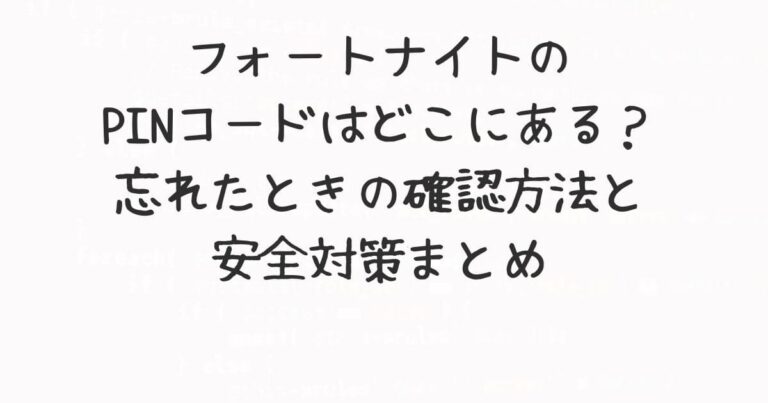 フォートナイトの
PINコードはどこにある？
忘れたときの確認方法と
安全対策まとめ